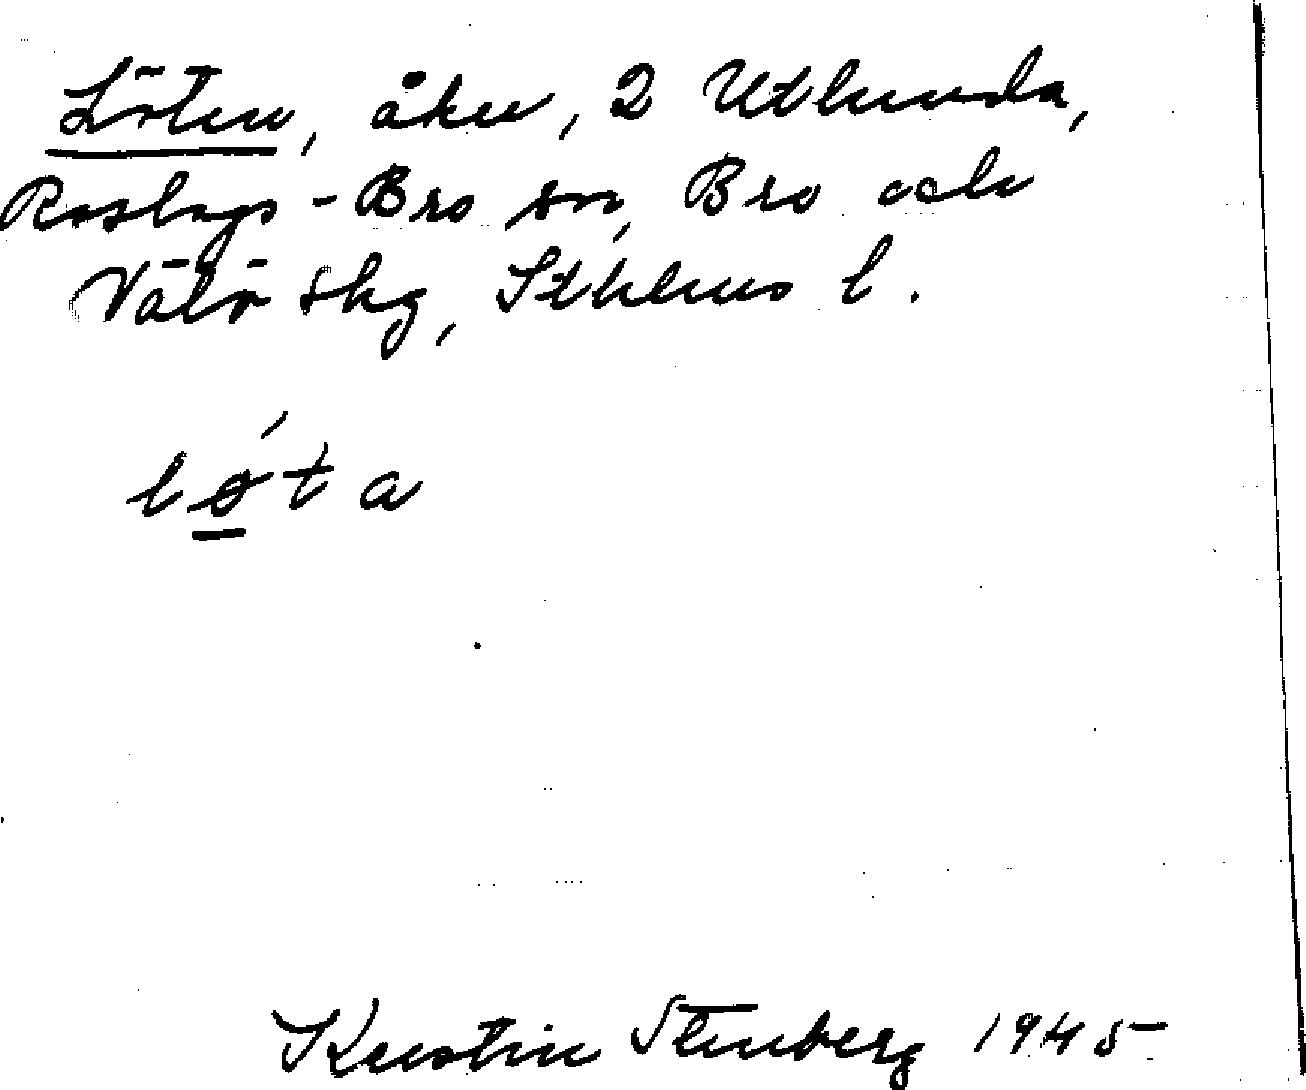 Löten, åker, 2 Utlunda,
Roslags-Bro sn, Bro och
Vätö skg, Sthlms l.
lǿta
Kerstin Stenberg 1945